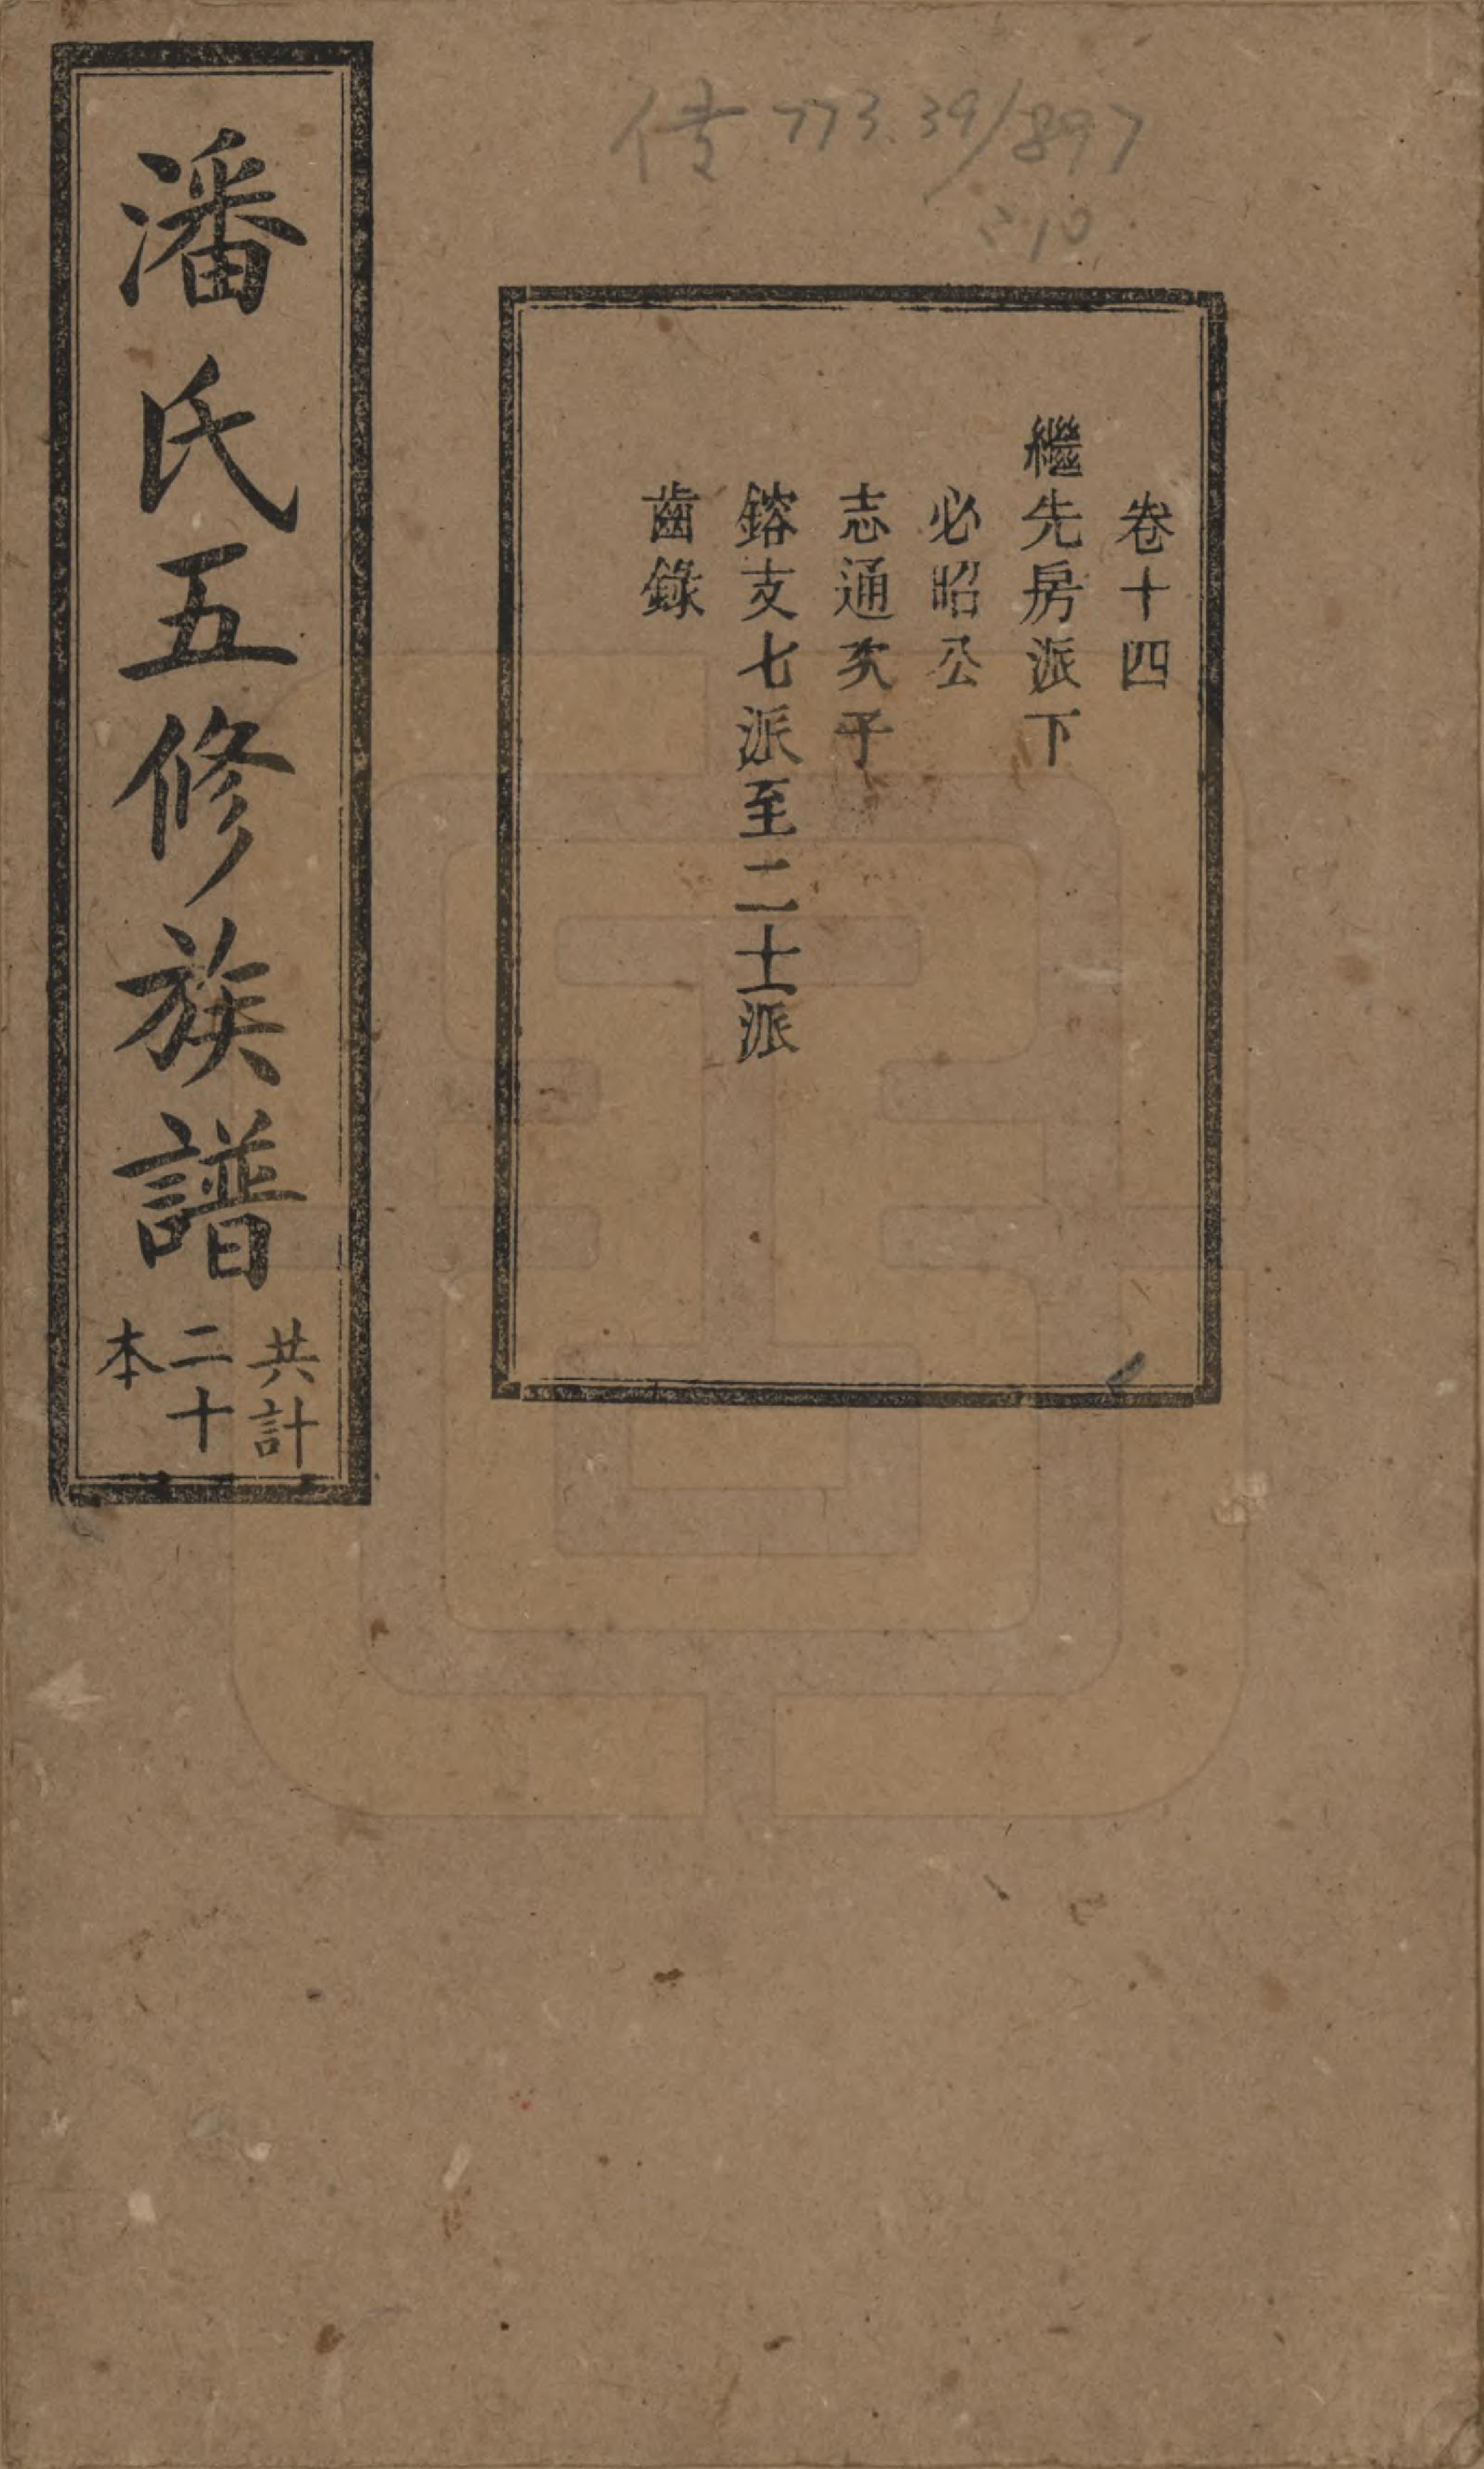 傳 773.39/897
:10
卷十四
繼先房派下
必昭公
志通次子
鎔支七派至二十派
齒錄
潘氏五修族譜
共計
二十
本